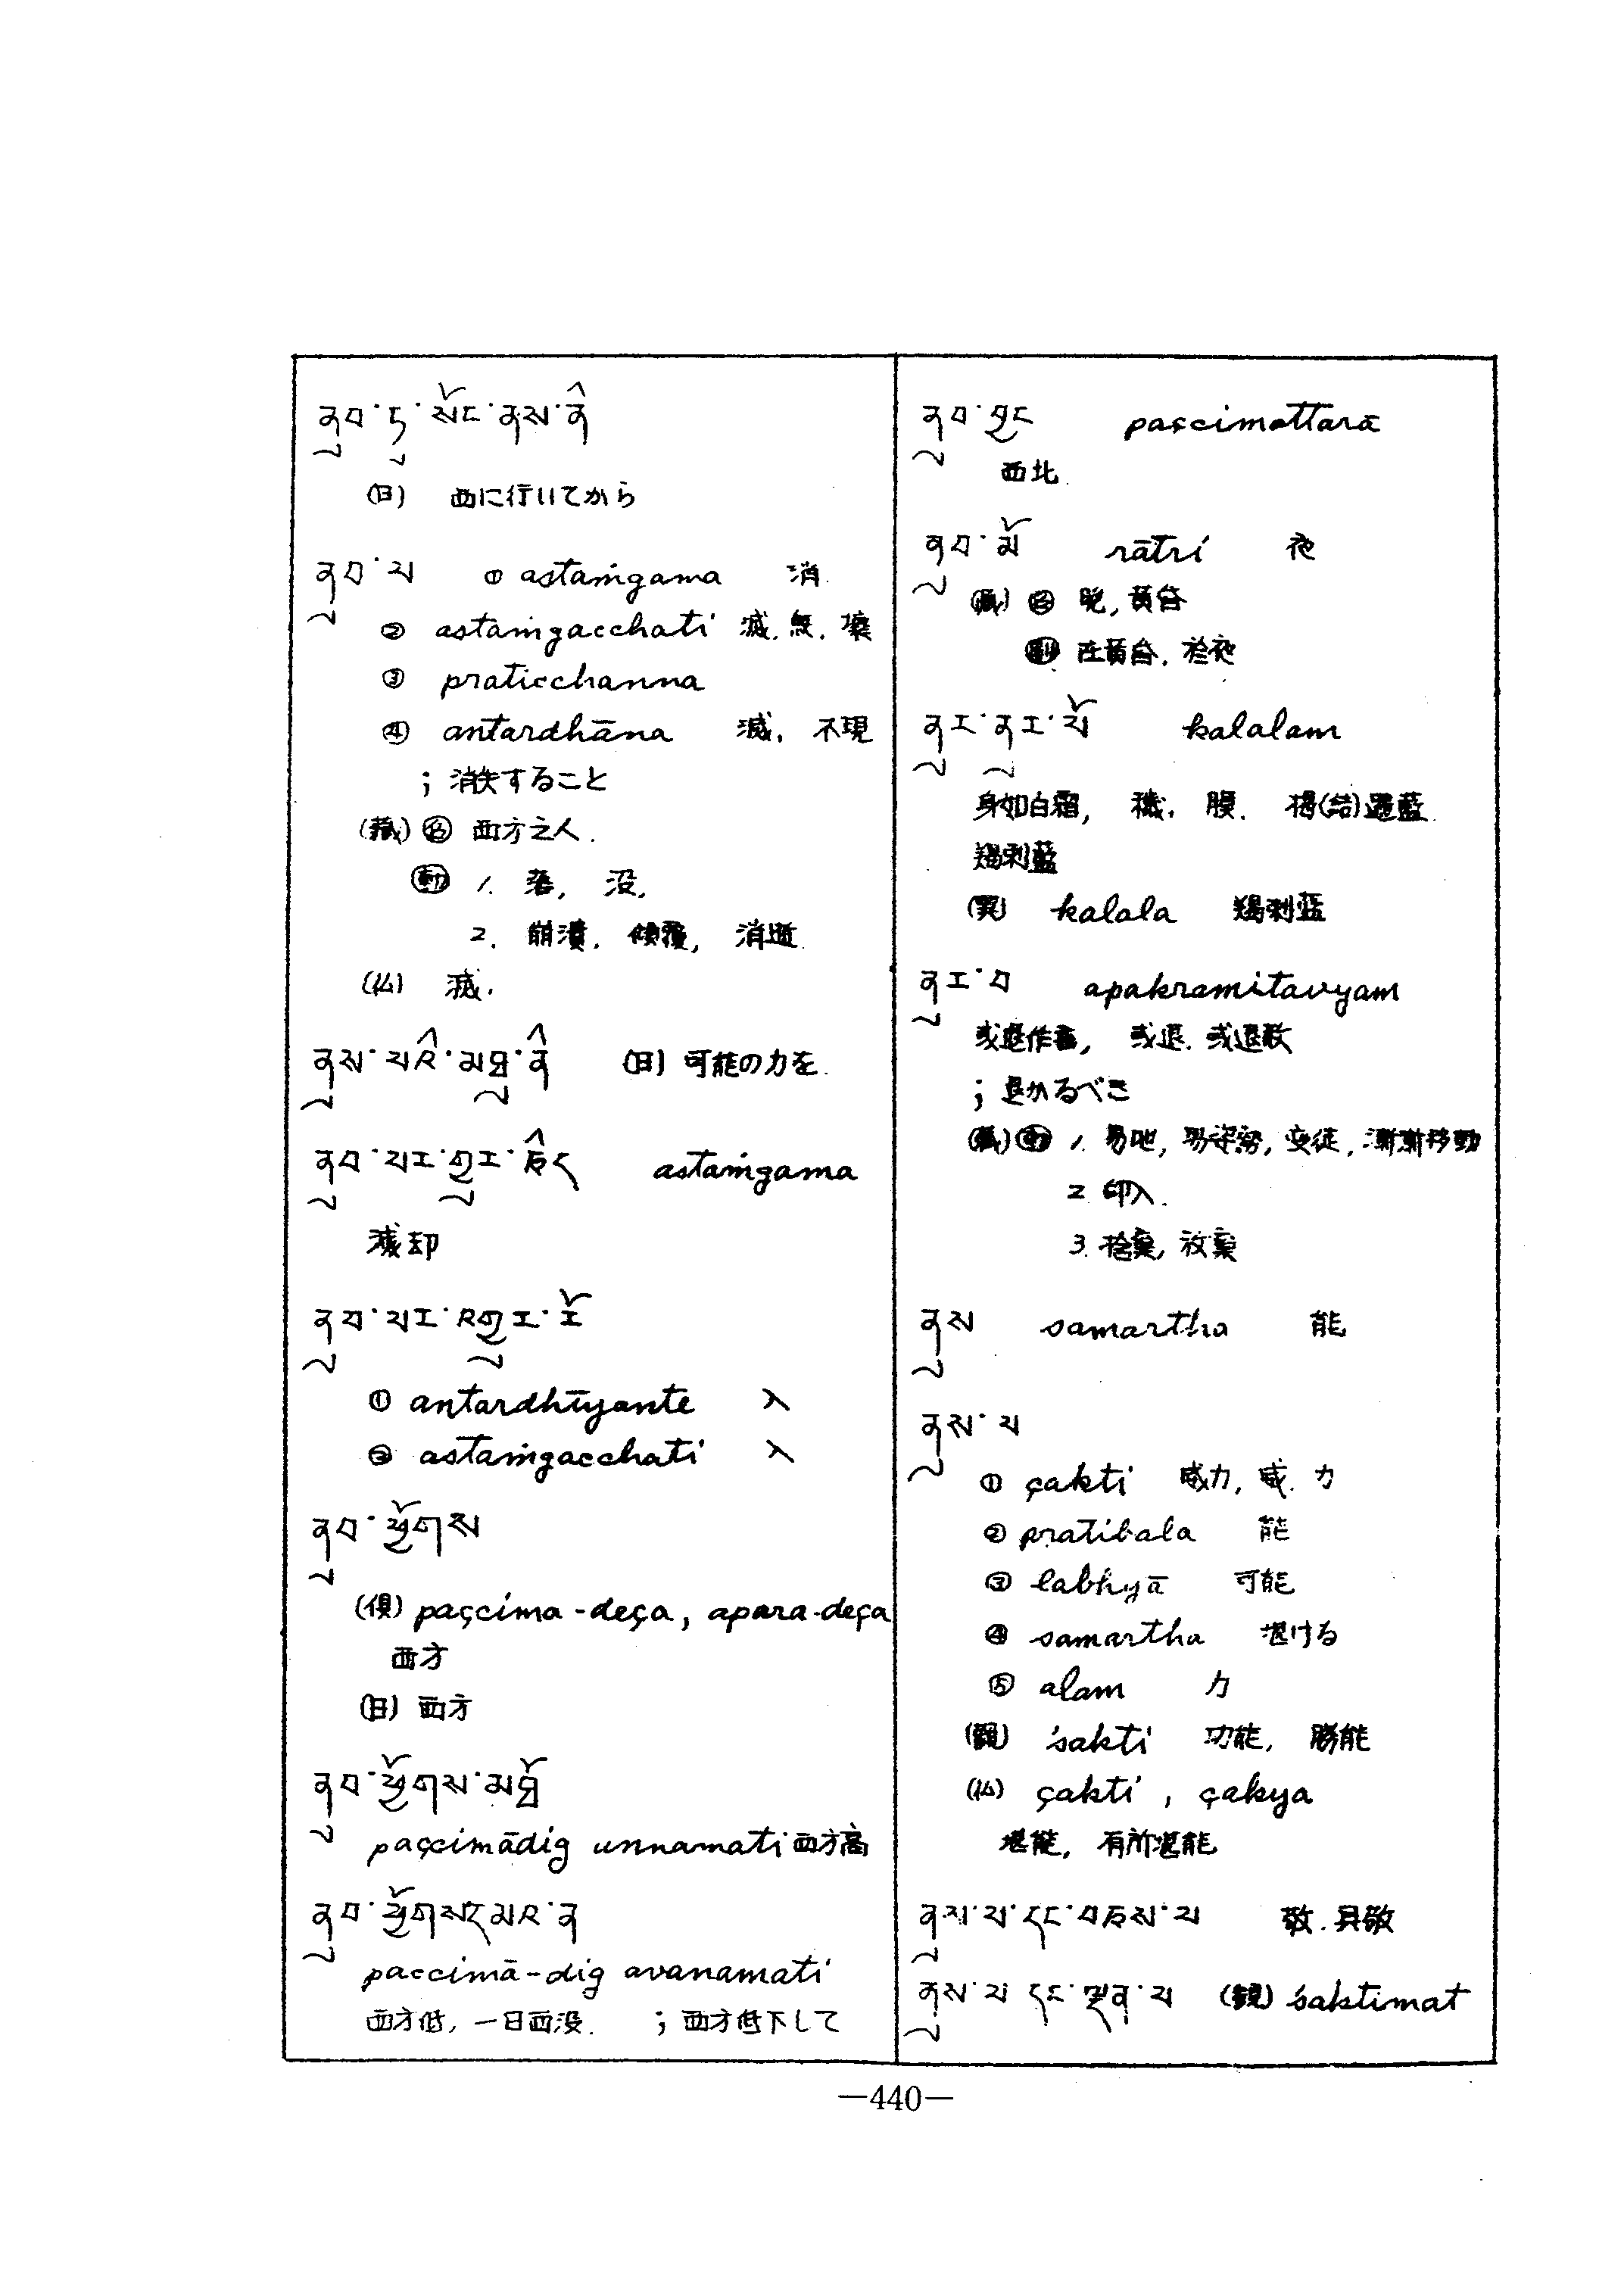 ནུབ་ཏུ་སོང་ནས་ནི
(日) 西に行いてから
ནུབ་པ ① astaṁgama 消.
② astaṁgacchati 滅. 無. 壊
③ praticchanna
④ antardhāna 滅, 不現
; 消失すること
(蔵) 名 西方之人.
動 1. 落, 没,
2. 崩潰, 傾覆, 消逝.
(仏) 滅.
ནུས་པའི་མཐུ་ནི (日) 可能の力を.
ནུབ་པར་གྱུར་ཅིང astaṁgama
滅却
ནུབ་པར་འགྱུར་རོ
① antardhīyante 入
② astaṁgacchati 入
ནུབ་ཕྱོགས
(倶) paçcima-deça, apara-deça
西方
(日) 西方
ནུབ་ཕྱོགས་མཐོ
paçcimādig unnamati 西方高
ནུབ་ཕྱོགས་དམའ་ན
paccimā-dig avanamati
西方低, 一日西没. ; 西方低下して
ནུབ་བྱང paçcimottarā
西北.
ནུབ་མོ rātri 夜
(蔵) 名 晩, 黄昏
副 在黄昏. 於夜
ནུར་ནུར་པོ kalalam
身如白霜, 穢. 膜. 掲(結)邏藍.
羯剌藍
(異) kalala 羯剌藍
ནུར་བ apakramitavyam
或退作書, 或退. 或退散
; 退かるべき
(蔵) 動 1. 易地, 易姿勢, 変徒, 漸漸移動
2. 印入.
3. 捨棄, 放棄
ནུས samartha 能
ནུས་པ
① çakti 威力, 威. 力
② pratibala 能
③ labhyā 可能
④ samartha 堪ける
⑤ alam 力
(観) śakti 功能, 勝能
(仏) çakti, çakya
堪能, 有所堪能
ནུས་པ་དང་བཅས་པ 敬. 具敬
ནུས་པ་དང་ལྡན་པ (観) śaktimat
—440—